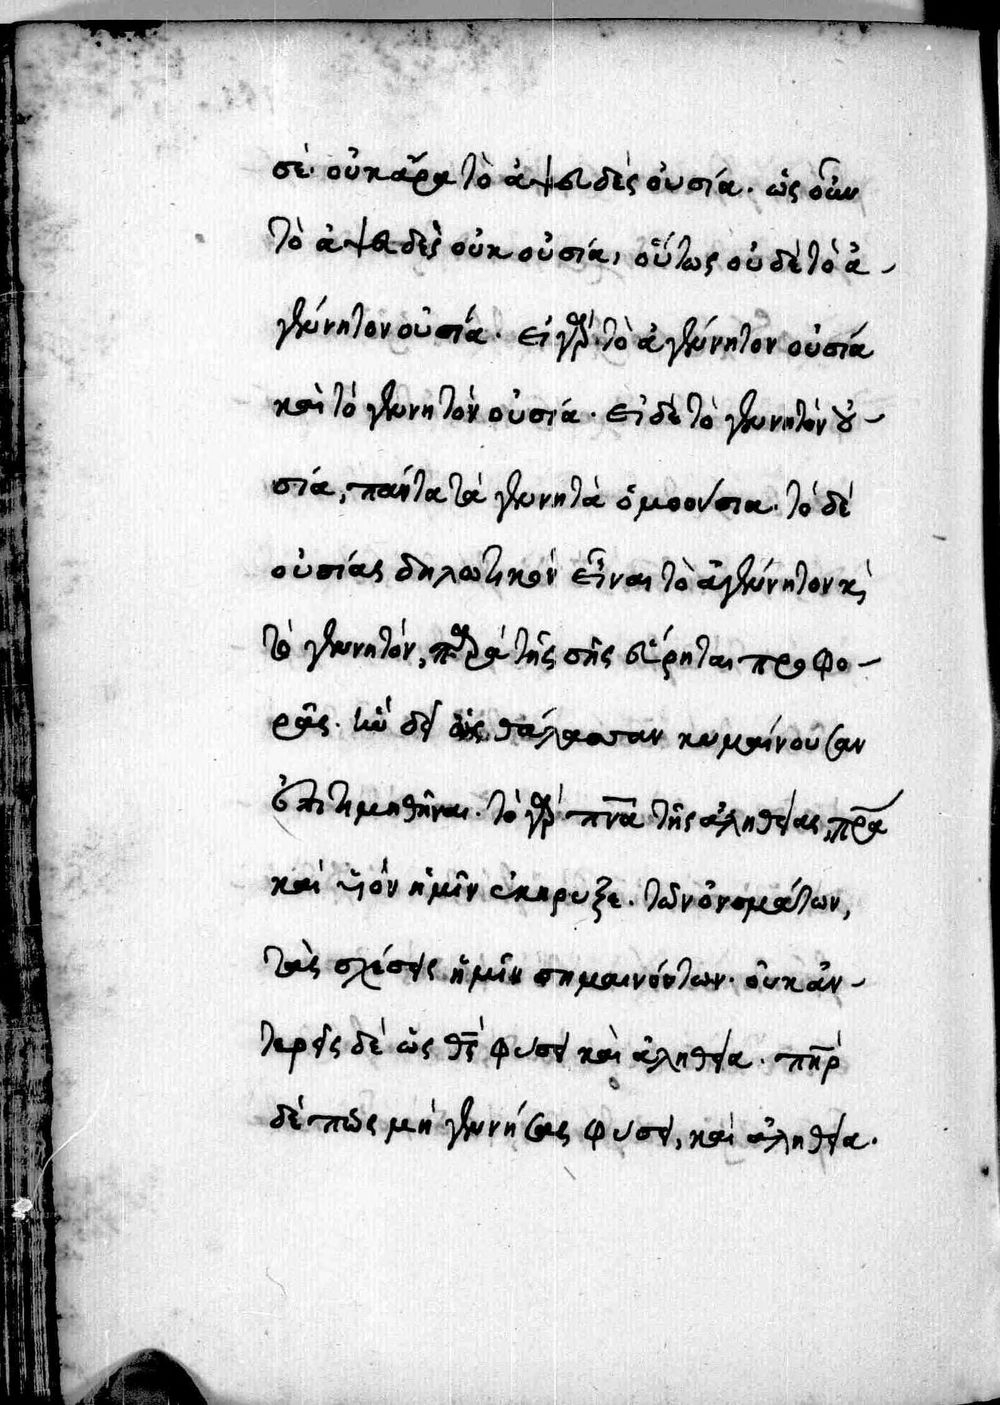 σέ· οὐκ ἄρα τὸ ἀψευδὲς οὐσία. ὡς οὖν
τὸ ἀψευδὲς οὐκ οὐσία, οὕτως οὐδὲ τὸ ἀ-
γέννητον οὐσία. εἰ γὰρ τὸ ἀγέννητον οὐσία
καὶ τὸ γεννητὸν οὐσία. εἰ δὲ τὸ γεννητὸν οὐ-
σία, πάντα τὰ γεννητὰ ὁμοούσια. τὸ δὲ
οὐσίας δηλωτικὸν εἶναι τὸ ἀγέννητον κὶ
τὸ γεννητόν, παρὰ τῆς σῆς εὕρηται προφο-
ρᾶς. ἣν δεῖ ὡς θάλασσαν κυμαίνουσαν
ἐπιτιμηθῆναι. τὸ γὰρ πνα τῆς ἀληθείας, πρα
καὶ υἱὸν ἡμῖν ἐκήρυξε. τῶν ὀνομάτων,
τὰς σχέσεις ἡμῖν σημαινόντων. οὐκ ἀν-
τερεῖς δὲ ὡς θς φύσει καὶ ἀληθεία. πηρ
δὲ πῶς μὴ γεννήσας φύσει, καὶ ἀληθεία.